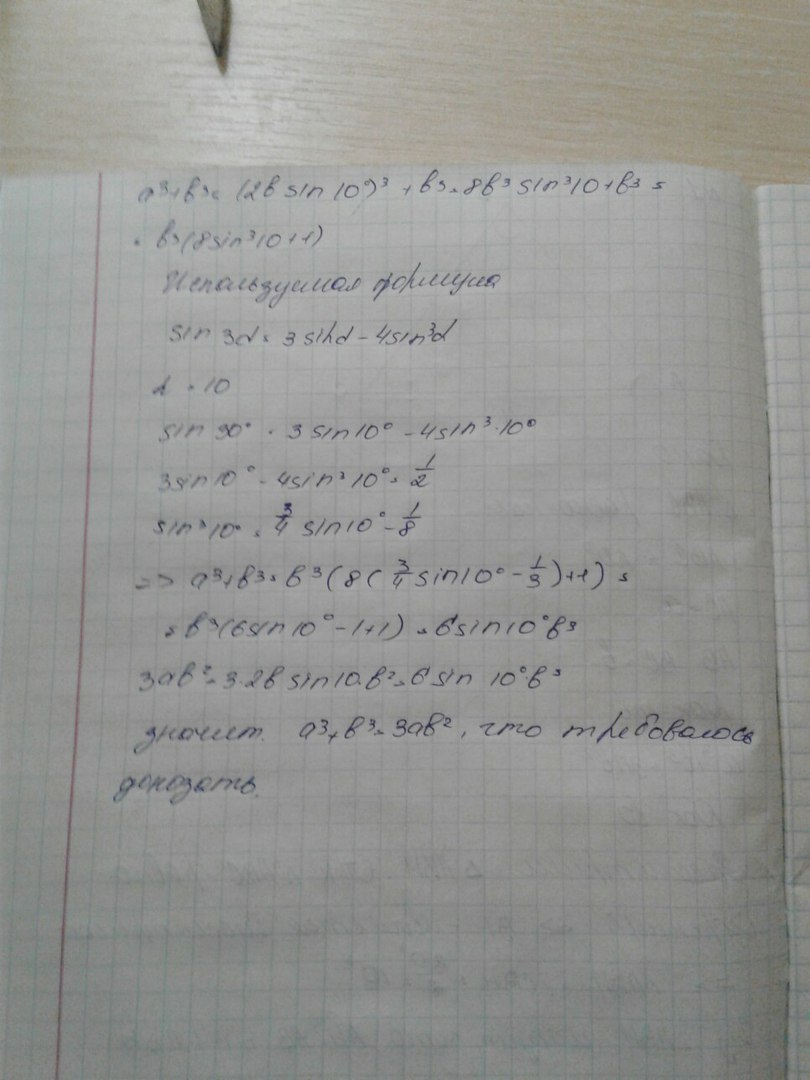 a³+b³= (2b sin 10°)³ + b³=8b³ sin³10+b³=
= b³(8sin³10+1)
Используемая формула
sin 3α= 3 sinα - 4sin³α
α = 10
sin 30° = 3 sin10° - 4sin³·10°
3sin10° - 4sin³10°= 1/2
sin³10° = 3/4 sin10° - 1/8
=> a³+b³=b³(8(3/4 sin10° - 1/3)+1) =
= b³(6sin10° - 1+1) = 6sin10°b³
3ab²=3·2b sin10·b²=6sin 10°b³
значит. a³+b³=3ab², что требовалось
доказать.